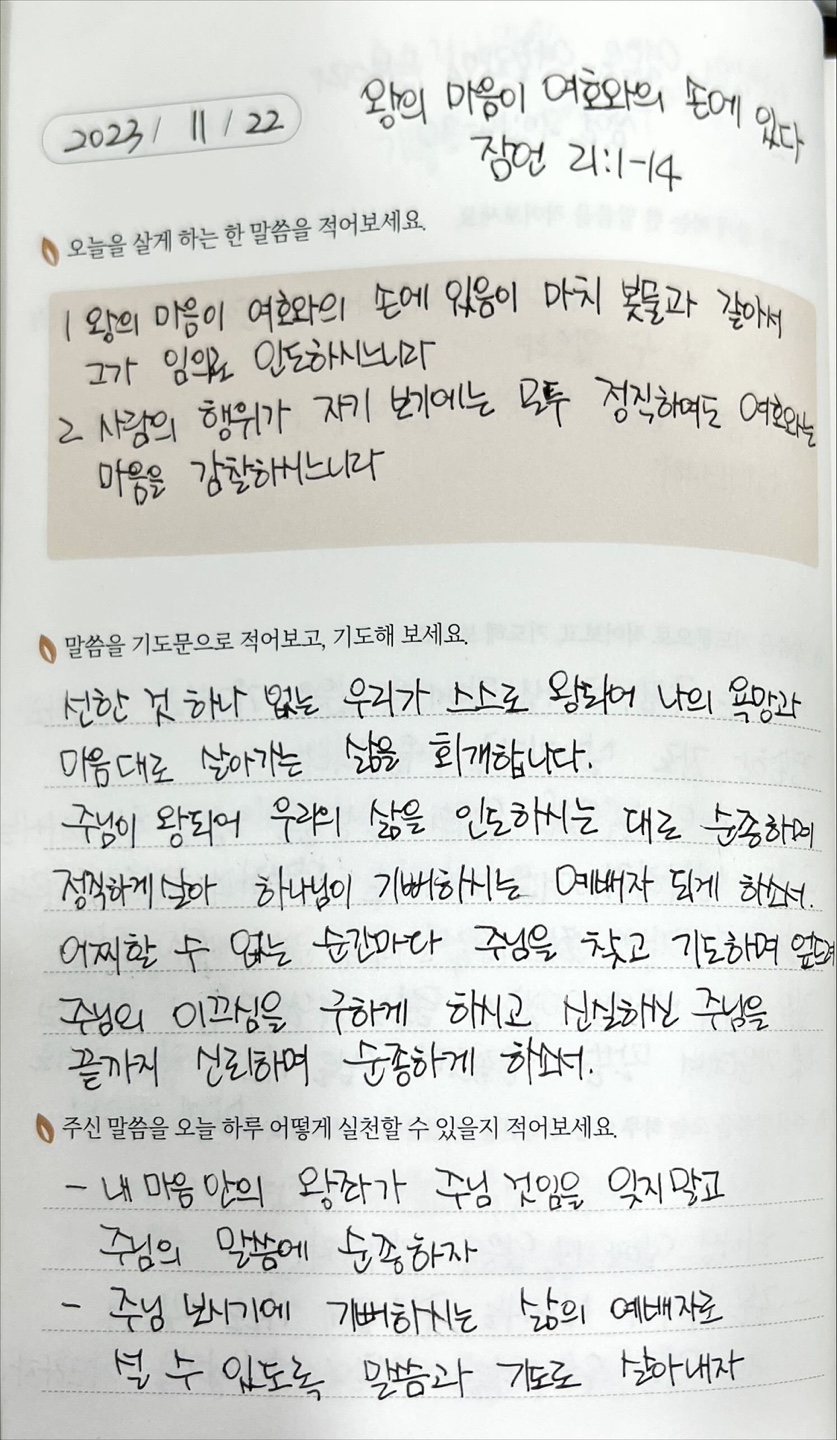 2023 / 11 / 22
왕의 마음이 여호와의 손에 있다
잠언 21:1-14
오늘을 살게 하는 한 말씀을 적어보세요.
1 왕의 마음이 여호와의 손에 있음이 마치 봇물과 같아서
그가 임의로 인도하시느니라
2 사람의 행위가 자기 보기에는 모두 정직하여도 여호와는
마음을 감찰하시느니라
말씀을 기도문으로 적어보고, 기도해 보세요.
선한 것 하나 없는 우리가 스스로 왕되어 나의 욕망과
마음대로 살아가는 삶을 회개합니다.
주님이 왕되어 우리의 삶을 인도하시는 대로 순종하며
정직하게 살아 하나님이 기뻐하시는 예배자 되게 하소서.
어찌할 수 없는 순간마다 주님을 찾고 기도하며 엎드려
주님의 이끄심을 구하게 하시고 신실하신 주님을
끝까지 신뢰하며 순종하게 하소서.
주신 말씀을 오늘 하루 어떻게 실천할 수 있을지 적어보세요.
- 내 마음 안의 왕좌가 주님 것임을 잊지 말고
주님의 말씀에 순종하자
- 주님 보시기에 기뻐하시는 삶의 예배자로
설 수 있도록 말씀과 기도로 살아내자